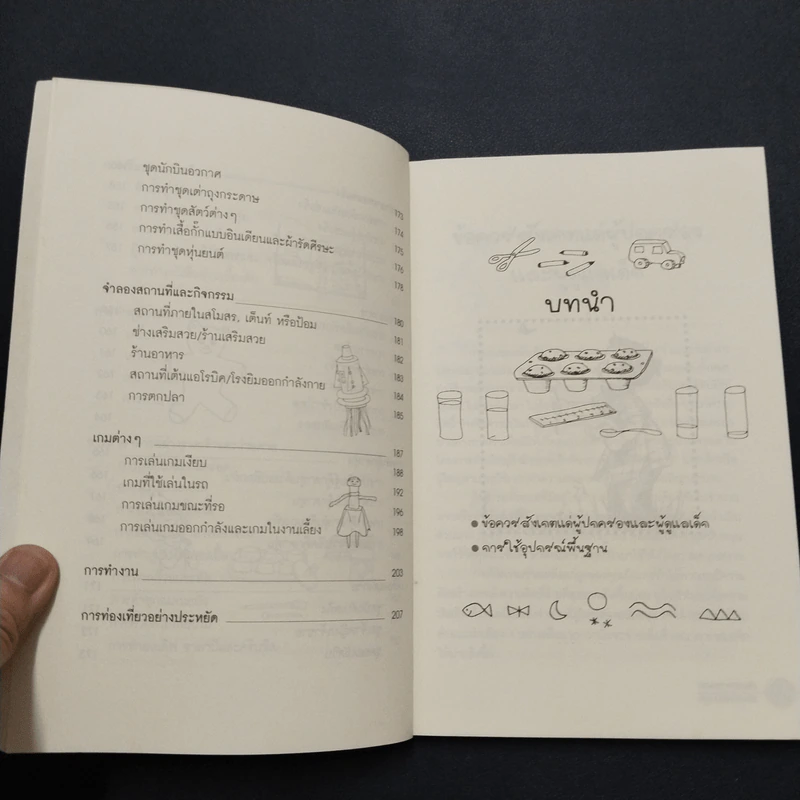 ชุดนักบินอวกาศ 173
การทำชุดเต่าถุงกระดาษ 174
การทำชุดสัตว์ต่างๆ 175
การทำเสื้อกั๊กแบบอินเดียนและผ้ารัดศีรษะ 176
การทำชุดหุ่นยนต์ 178
จำลองสถานที่และกิจกรรม 180
สถานที่ภายในสโมสร, เต็นท์ หรือป้อม 181
ช่างเสริมสวย/ร้านเสริมสวย 182
ร้านอาหาร 183
สถานที่เต้นแอโรบิค/โรงยิมออกกำลังกาย 184
การตกปลา 185
เกมต่างๆ 187
การเล่นเกมเงียบ 188
เกมที่ใช้เล่นในรถ 192
การเล่นเกมขณะที่รอ 196
การเล่นเกมออกกำลังและเกมในงานเลี้ยง 198
การทำงาน 203
การท่องเที่ยวอย่างประหยัด 207
บทนำ
● ข้อควรสังเกตแด่ผู้ปกครองและผู้ดูแลเด็ก
● การใช้อุปกรณ์พื้นฐาน